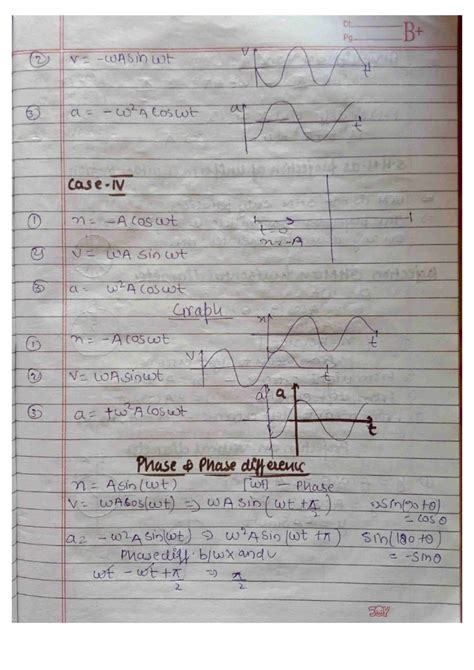 Dt.
Pg.
B+
② v = -ωA sin ωt
v
t
③ a = -ω²A cos ωt
a
t
Case-IV
① x = -A cos ωt
t=0
x=-A
② v = ωA sin ωt
③ a = ω²A cos ωt
Graph
① x = -A cos ωt
x
t
② v = ωA sin ωt
v
t
③ a = +ω²A cos ωt
a
a
t
Phase & Phase difference
x = A sin(ωt) [ωt] - Phase
v = ωA cos(ωt) ⇒ ωA sin(ωt + π/2) sin(90+θ)
= cosθ
a = -ω²A sin(ωt) ⇒ ω²A sin(ωt + π) sin(180+θ)
= -sinθ
- Phase diff. b/w x and v
ωt - ωt + π/2 ⇒ π/2